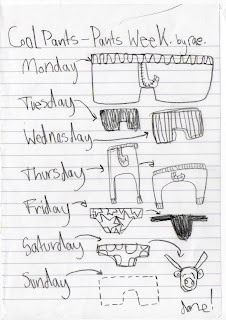 Cool Pants - Pants Week. by rae.
Monday
Tuesday
Wednesday
Thursday
Friday
Saturday
Sunday
done!